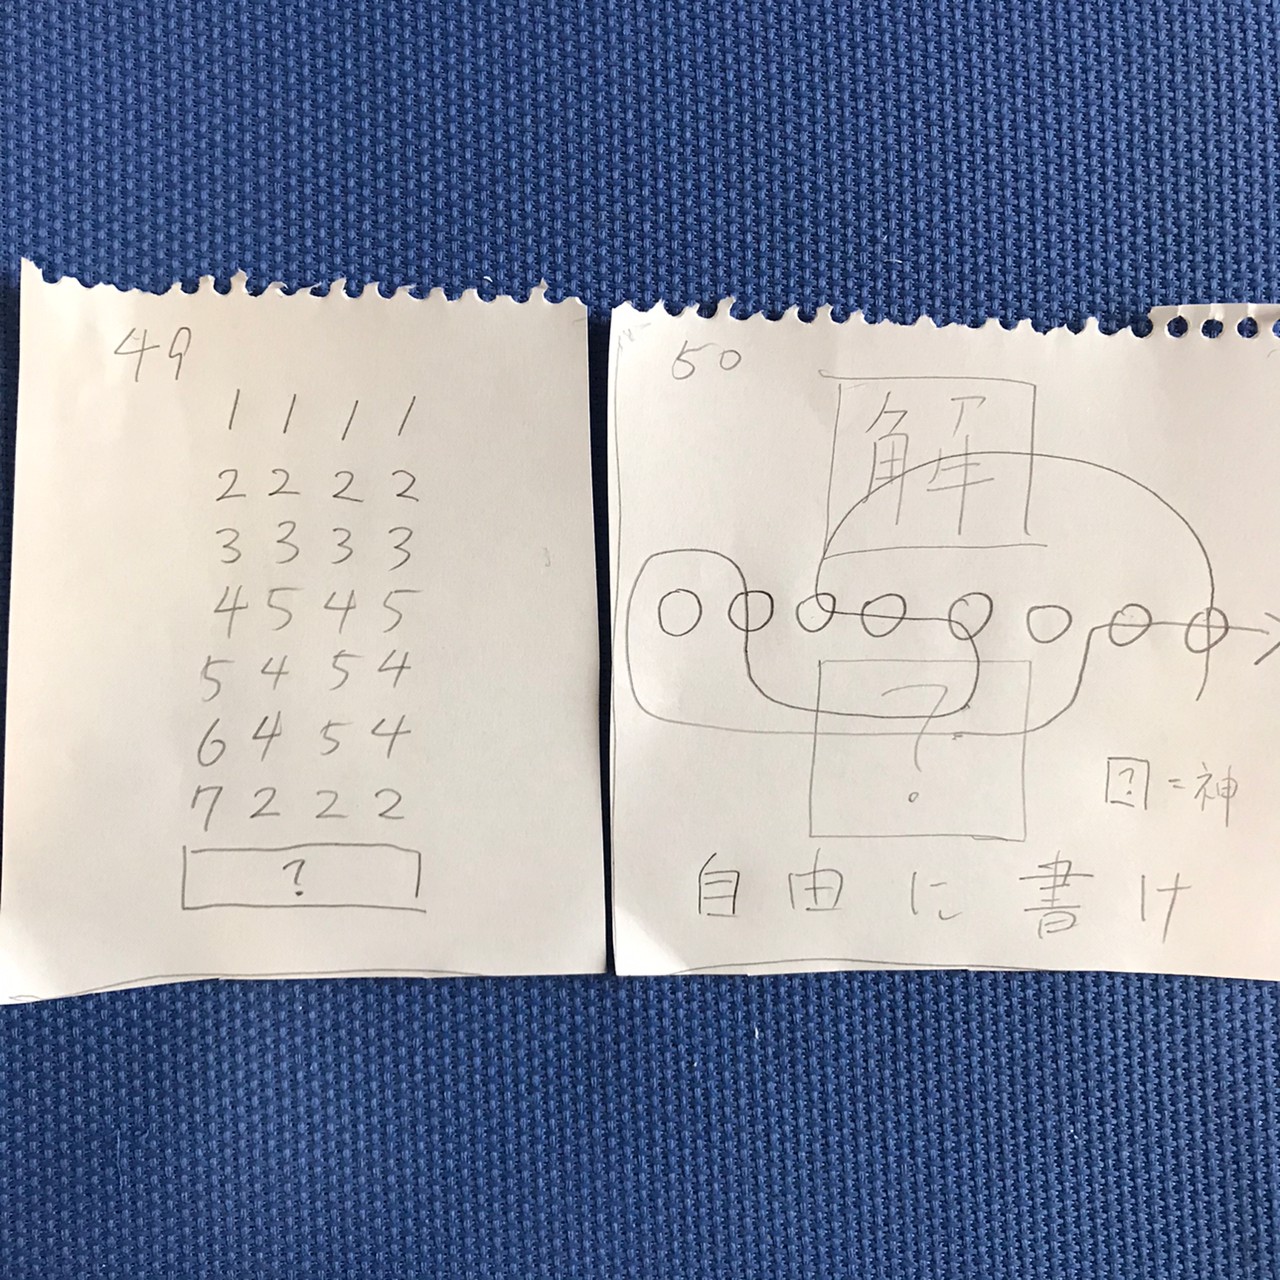 49
1 1 1 1
2 2 2 2
3 3 3 3
4 5 4 5
5 4 5 4
6 4 5 4
7 2 2 2
?
50
解
?
?=神
自由に書け